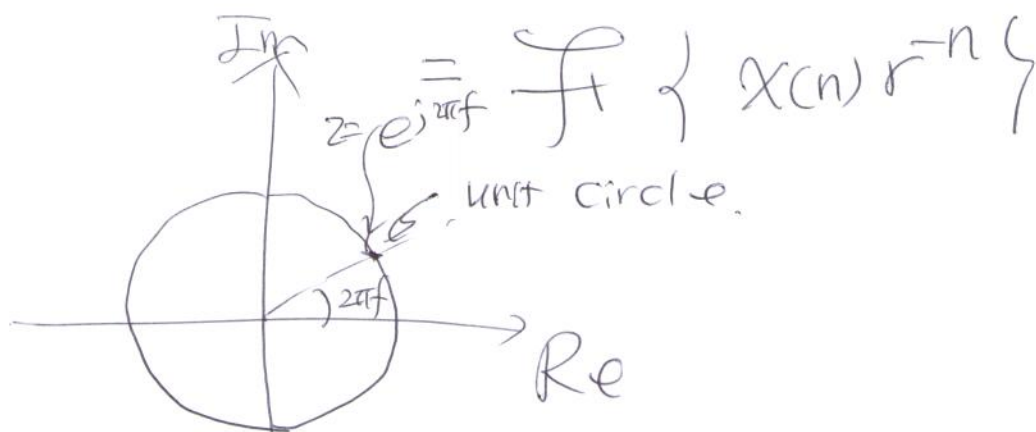 Im
= ℱ { x(n) r^{-n} }
z = e^{j2πf}
unit circle.
2πf
Re